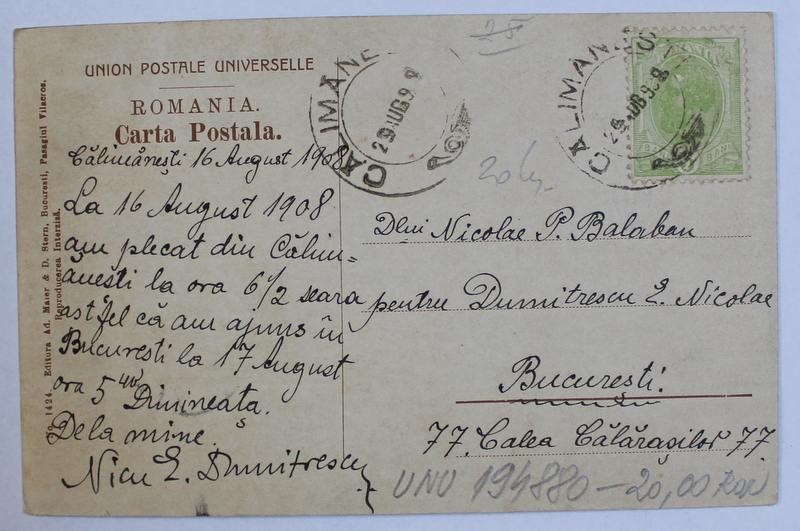 UNION POSTALE UNIVERSELLE
ROMANIA.
Carta Postala.
Călimănești 16 August 1908
La 16 August 1908
am plecat din Călim=
ănești la ora 6 1/2 seara
astfel că am ajuns în
București la 17 August
ora 5 40 Dimineața.
De la mine.
Nicu E. Dumitrescu
No. 1424. Editura Ad. Maier & D. Stern, Bucuresti, Pasagiul Vilacros.
Reproducerea Interzisă.
CALIMANE
29 AUG 98
CALIMAN
AUG 98
BANI
20 
Dlui Nicolae P. Balaban
pentru Dumitrescu E. Nicolae
București.
77. Calea Călărașilor 77
UNU 194880 – 20,00 Ron